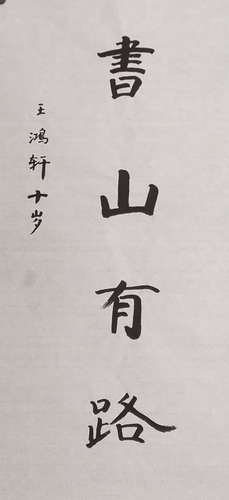 書山有路
王鴻轩十岁